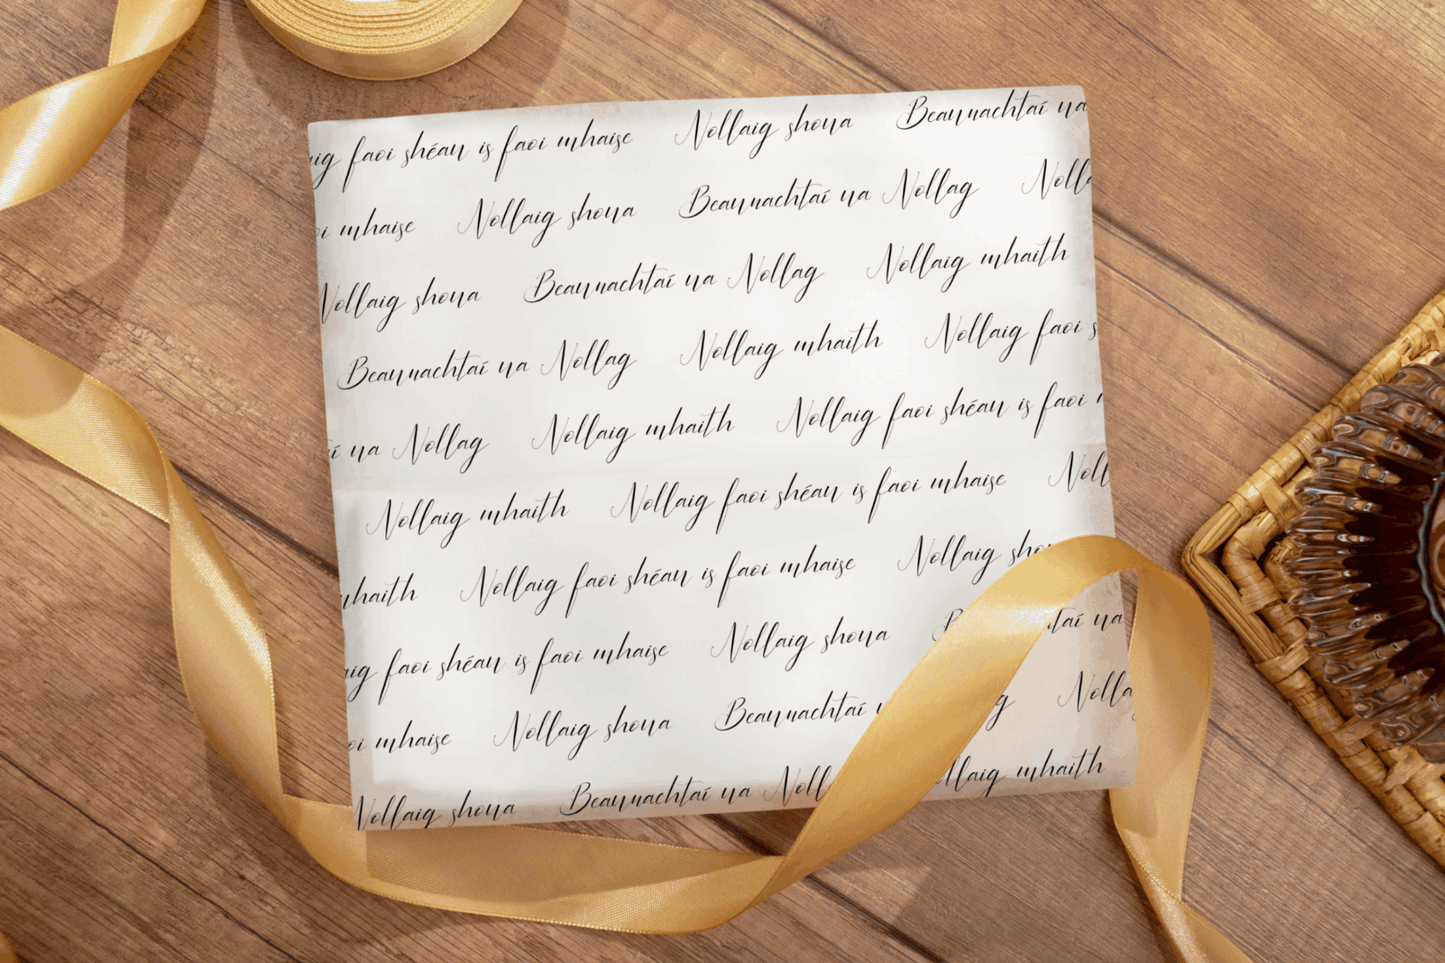 faoi shéan is faoi mhaise Nollaig shona Beannachtaí na
mhaise Nollaig shona Beannachtaí na Nollag
Nollaig shona Beannachtaí na Nollag Nollaig mhaith
Beannachtaí na Nollag Nollaig mhaith Nollaig faoi
na Nollag Nollaig mhaith Nollaig faoi shéan is faoi
Nollaig mhaith Nollaig faoi shéan is faoi mhaise
mhaith Nollaig faoi shéan is faoi mhaise Nollaig
faoi shéan is faoi mhaise Nollaig shona na
mhaise Nollaig shona Beannachtaí
Nollaig shona Beannachtaí na mhaith